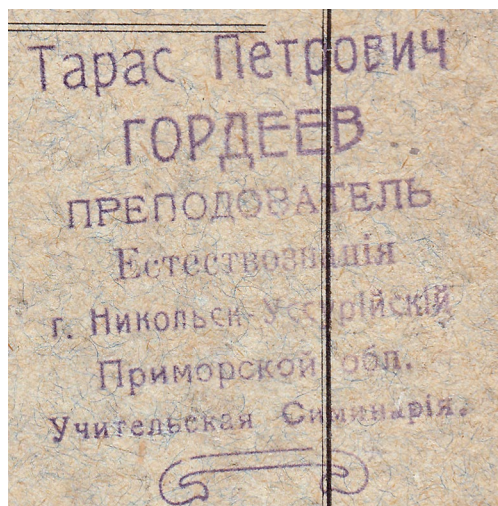 Тарас Петрович
ГОРДЕЕВ
ПРЕПОДОВАТЕЛЬ
Естествознанія
г. Никольск-Уссурійскій
Приморской обл.
Учительская Симинарія.